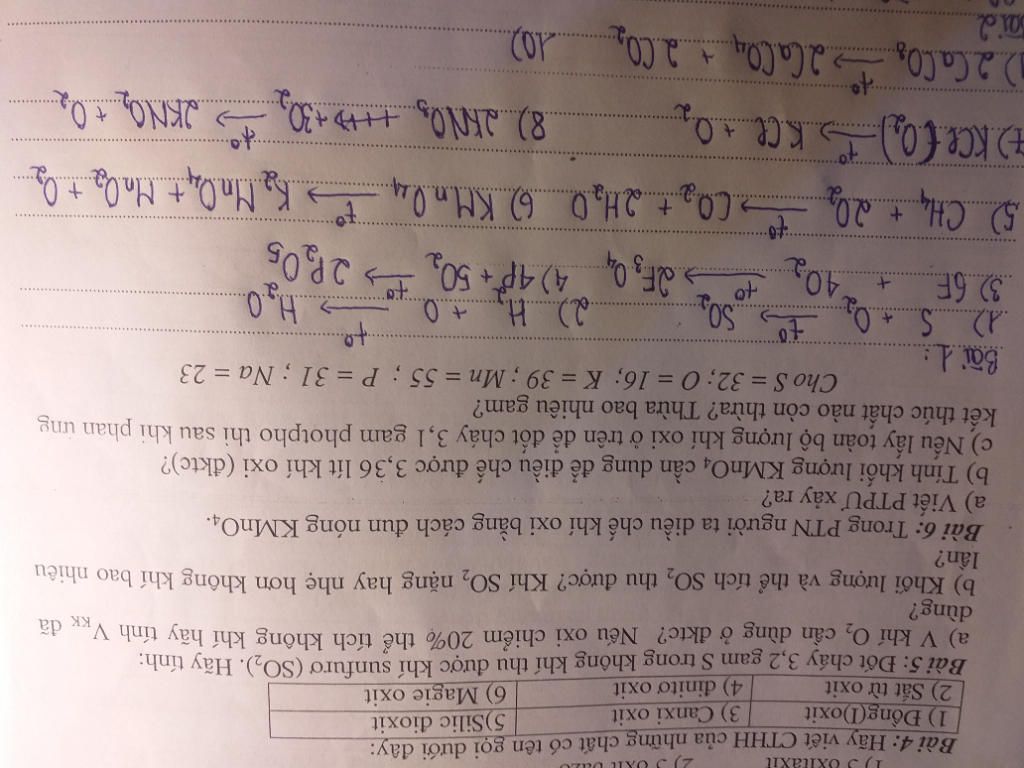 1) 3 oxitaxit 2) 3 oxit bazơ
Bài 4: Hãy viết CTHH của những chất có tên gọi dưới đây:
1) Đồng(I)oxit 3) Canxi oxit 5)Silic đioxit
2) Sắt từ oxit 4) đinitơ oxit 6) Magie oxit
Bài 5: Đốt cháy 3,2 gam S trong không khí thu được khí sunfurơ (SO₂). Hãy tính:
a) V khí O₂ cần dùng ở đktc? Nếu oxi chiếm 20% thể tích không khí hãy tính V_KK đã
dùng?
b) Khối lượng và thể tích SO₂ thu được? Khí SO₂ nặng hay nhẹ hơn không khí bao nhiêu
lần?
Bài 6: Trong PTN người ta điều chế khí oxi bằng cách đun nóng KMnO₄.
a) Viết PTPƯ xảy ra?
b) Tính khối lượng KMnO₄ cần dùng để điều chế được 3,36 lít khí oxi (đktc)?
c) Nếu lấy toàn bộ lượng khí oxi ở trên để đốt cháy 3,1 gam photpho thì sau khi phản ứng
kết thúc chất nào còn thừa? Thừa bao nhiêu gam?
Cho S = 32; O = 16; K = 39 ; Mn = 55 ; P = 31 ; Na = 23
Bài 1:
1) S + O₂ —t°→ SO₂ 2) H₂ + O —t°→ H₂O
3) 6F + 4O₂ —t°→ 2F₃O₄ 4) 4P + 5O₂ —t°→ 2P₂O₅
5) CH₄ + 2O₂ —t°→ CO₂ + 2H₂O 6) KMnO₄ —t°→ K₂MnO₄ + MnO₂ + O₂
7) KCl(O₂) —t°→ KCl + O₂ 8) 2KNO₃ +3O₂ —t°→ 2KNO₂ + O₂
) 2CaCO₃ —t°→ 2CaCO₄ + 2CO₂ 10)
Bài 2